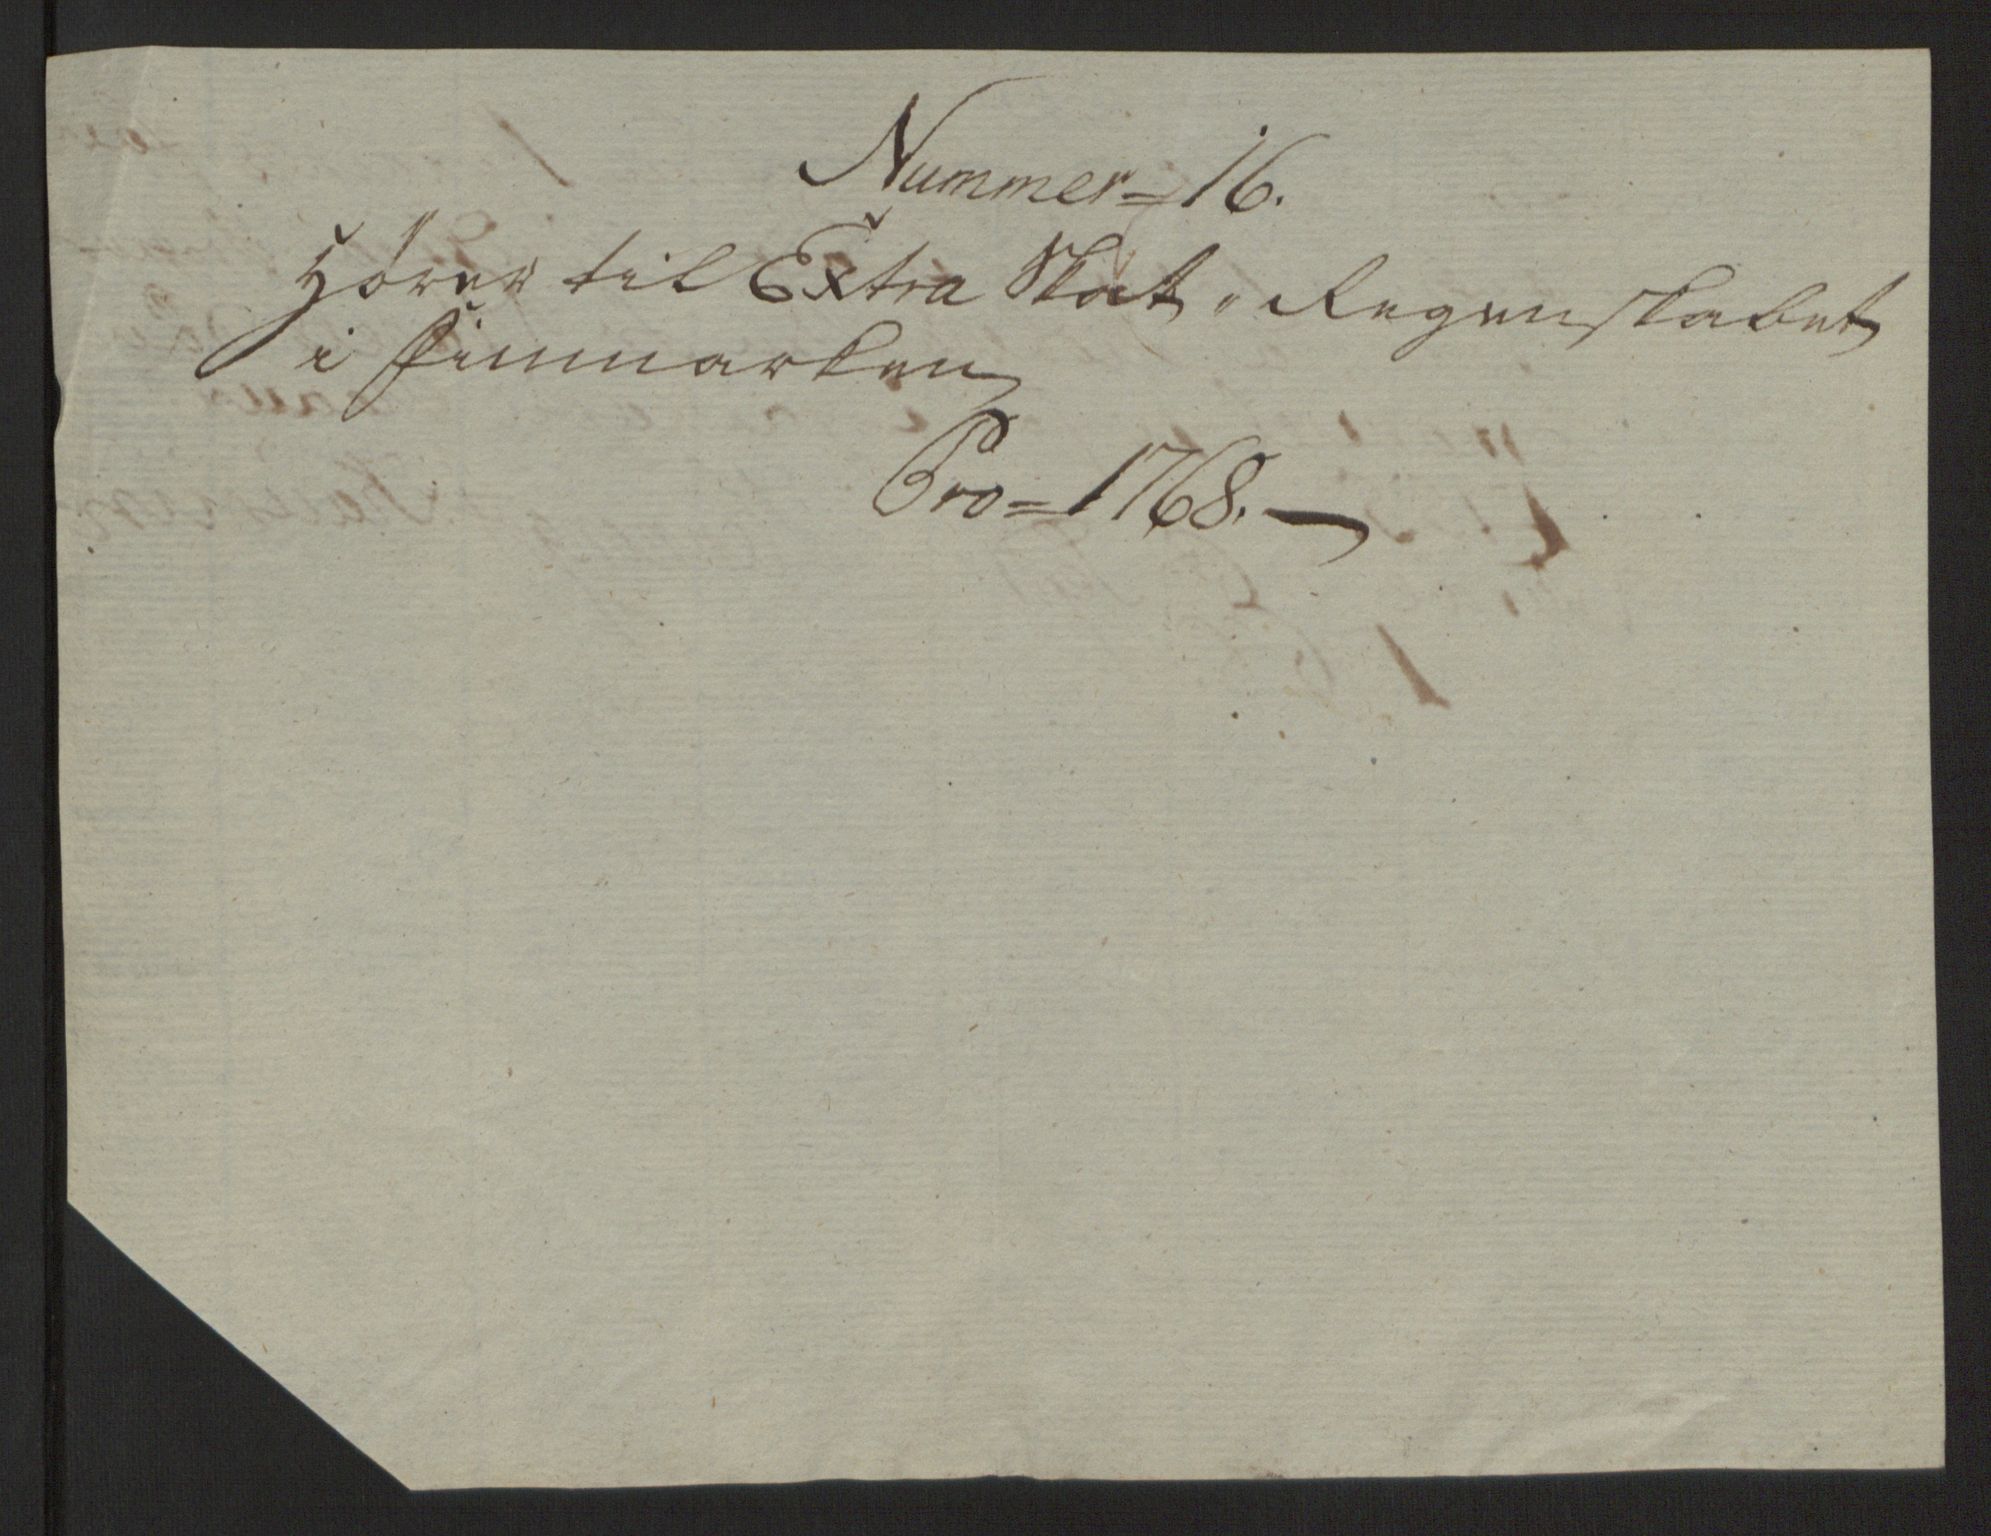 Nummer = 16.
Hörer til Extra Skat, Regenskabet
i Finmarken
Pro = 1768. —